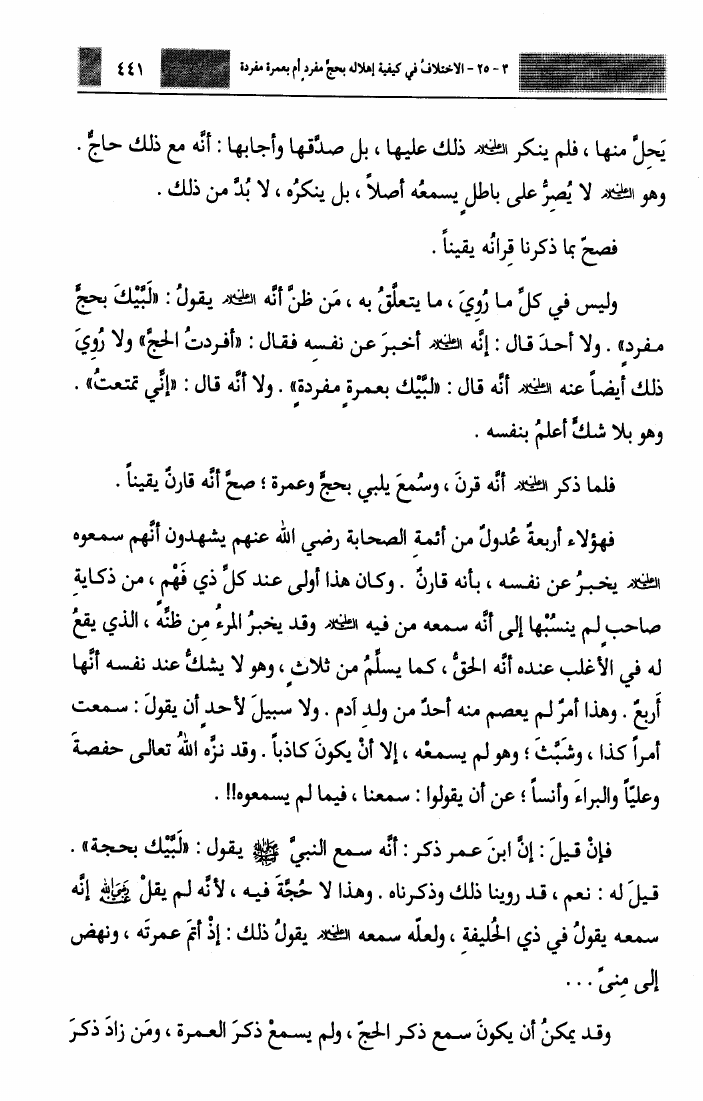 ٣ - ٢٥ - الاختلافُ في كيفية إهلاله بحجٍّ مفردٍ أم بعمرة مفردة ٤٤١
يَحِلَّ منها ، فلم ينكر عليه السلام ذلك عليها ، بل صدَّقها وأجابها : أنَّه مع ذلك حاجٌّ .
وهو عليه السلام لا يُصِرُّ على باطلٍ يسمعُه أصلاً ، بل ينكرُه ، لا بُدَّ من ذلك .
فصحّ بما ذكرنا قِرانُه يقيناً .
وليس في كلِّ ما رُوِيَ ، ما يتعلَّقُ به ، مَن ظنَّ أنَّه عليه السلام يقولُ : «لَبَّيْكَ بحجٍّ
مفردٍ» . ولا أحدَ قال : إنَّه عليه السلام أخبرَ عن نفسِه فقال : «أفردتُ الحجَّ» ولا رُوِيَ
ذلك أيضاً عنه عليه السلام أنَّه قال : «لبَّيْك بعمرةٍ مفردةٍ» . ولا أنَّه قال : «إنِّي تمتعتُ» .
وهو بلا شكٍّ أعلمُ بنفسه .
فلما ذكر عليه السلام أنَّه قرنَ ، وسُمعَ يلبي بحجٍّ وعمرة ؛ صحَّ أنَّه قارنٌ يقيناً .
فهؤلاء أربعةٌ عُدولٌ من أئمةِ الصحابة رضي الله عنهم يشهدون أنَّهم سمعوه
عليه السلام يخبرُ عن نفسه ، بأنه قارنٌ . وكان هذا أولى عند كلِّ ذي فَهْمٍ ، من ذكايةِ
صاحبٍ لم ينسُبْها إلى أنَّه سمعه من فيه عليه السلام وقد يخبرُ المرءُ مِن ظنِّه ، الذي يقعُ
له في الأغلب عنده أنَّه الحقُّ ، كما يسلِّمُ من ثلاثٍ ، وهو لا يشكُّ عند نفسه أنَّها
أربعٌ . وهذا أمرٌ لم يعصم منه أحدٌ من ولدِ آدم . ولا سبيلَ لأحدٍ أن يقولَ : سمعت
أمراً كذا ، وشَبَّثَ ؛ وهو لم يسمعْه ، إلا أنْ يكونَ كاذباً . وقد نزَّه اللهُ تعالى حفصةَ
وعليّاً والبراءَ وأنساً ؛ عن أن يقولوا : سمعنا ، فيما لم يسمعوه!! .
فإنْ قيلَ : إنَّ ابنَ عمر ذكر : أنَّه سمع النبيَّ ﷺ يقول : «لَبَّيْك بحجة» .
قيلَ له : نعم ، قد روينا ذلك وذكرناه . وهذا لا حُجَّةَ فيه ، لأنَّه لم يقلْ رضي الله إنَّه
سمعه يقولُ في ذي الحُليفةِ ، ولعلّه سمعه عليه السلام يقولُ ذلك : إذْ أتمَّ عمرتَه ، ونهض
إلى مِنىً ...
وقد يمكنُ أن يكونَ سمع ذكر الحجّ ، ولم يسمعْ ذكرَ العمرة ، ومَن زادَ ذكرَ